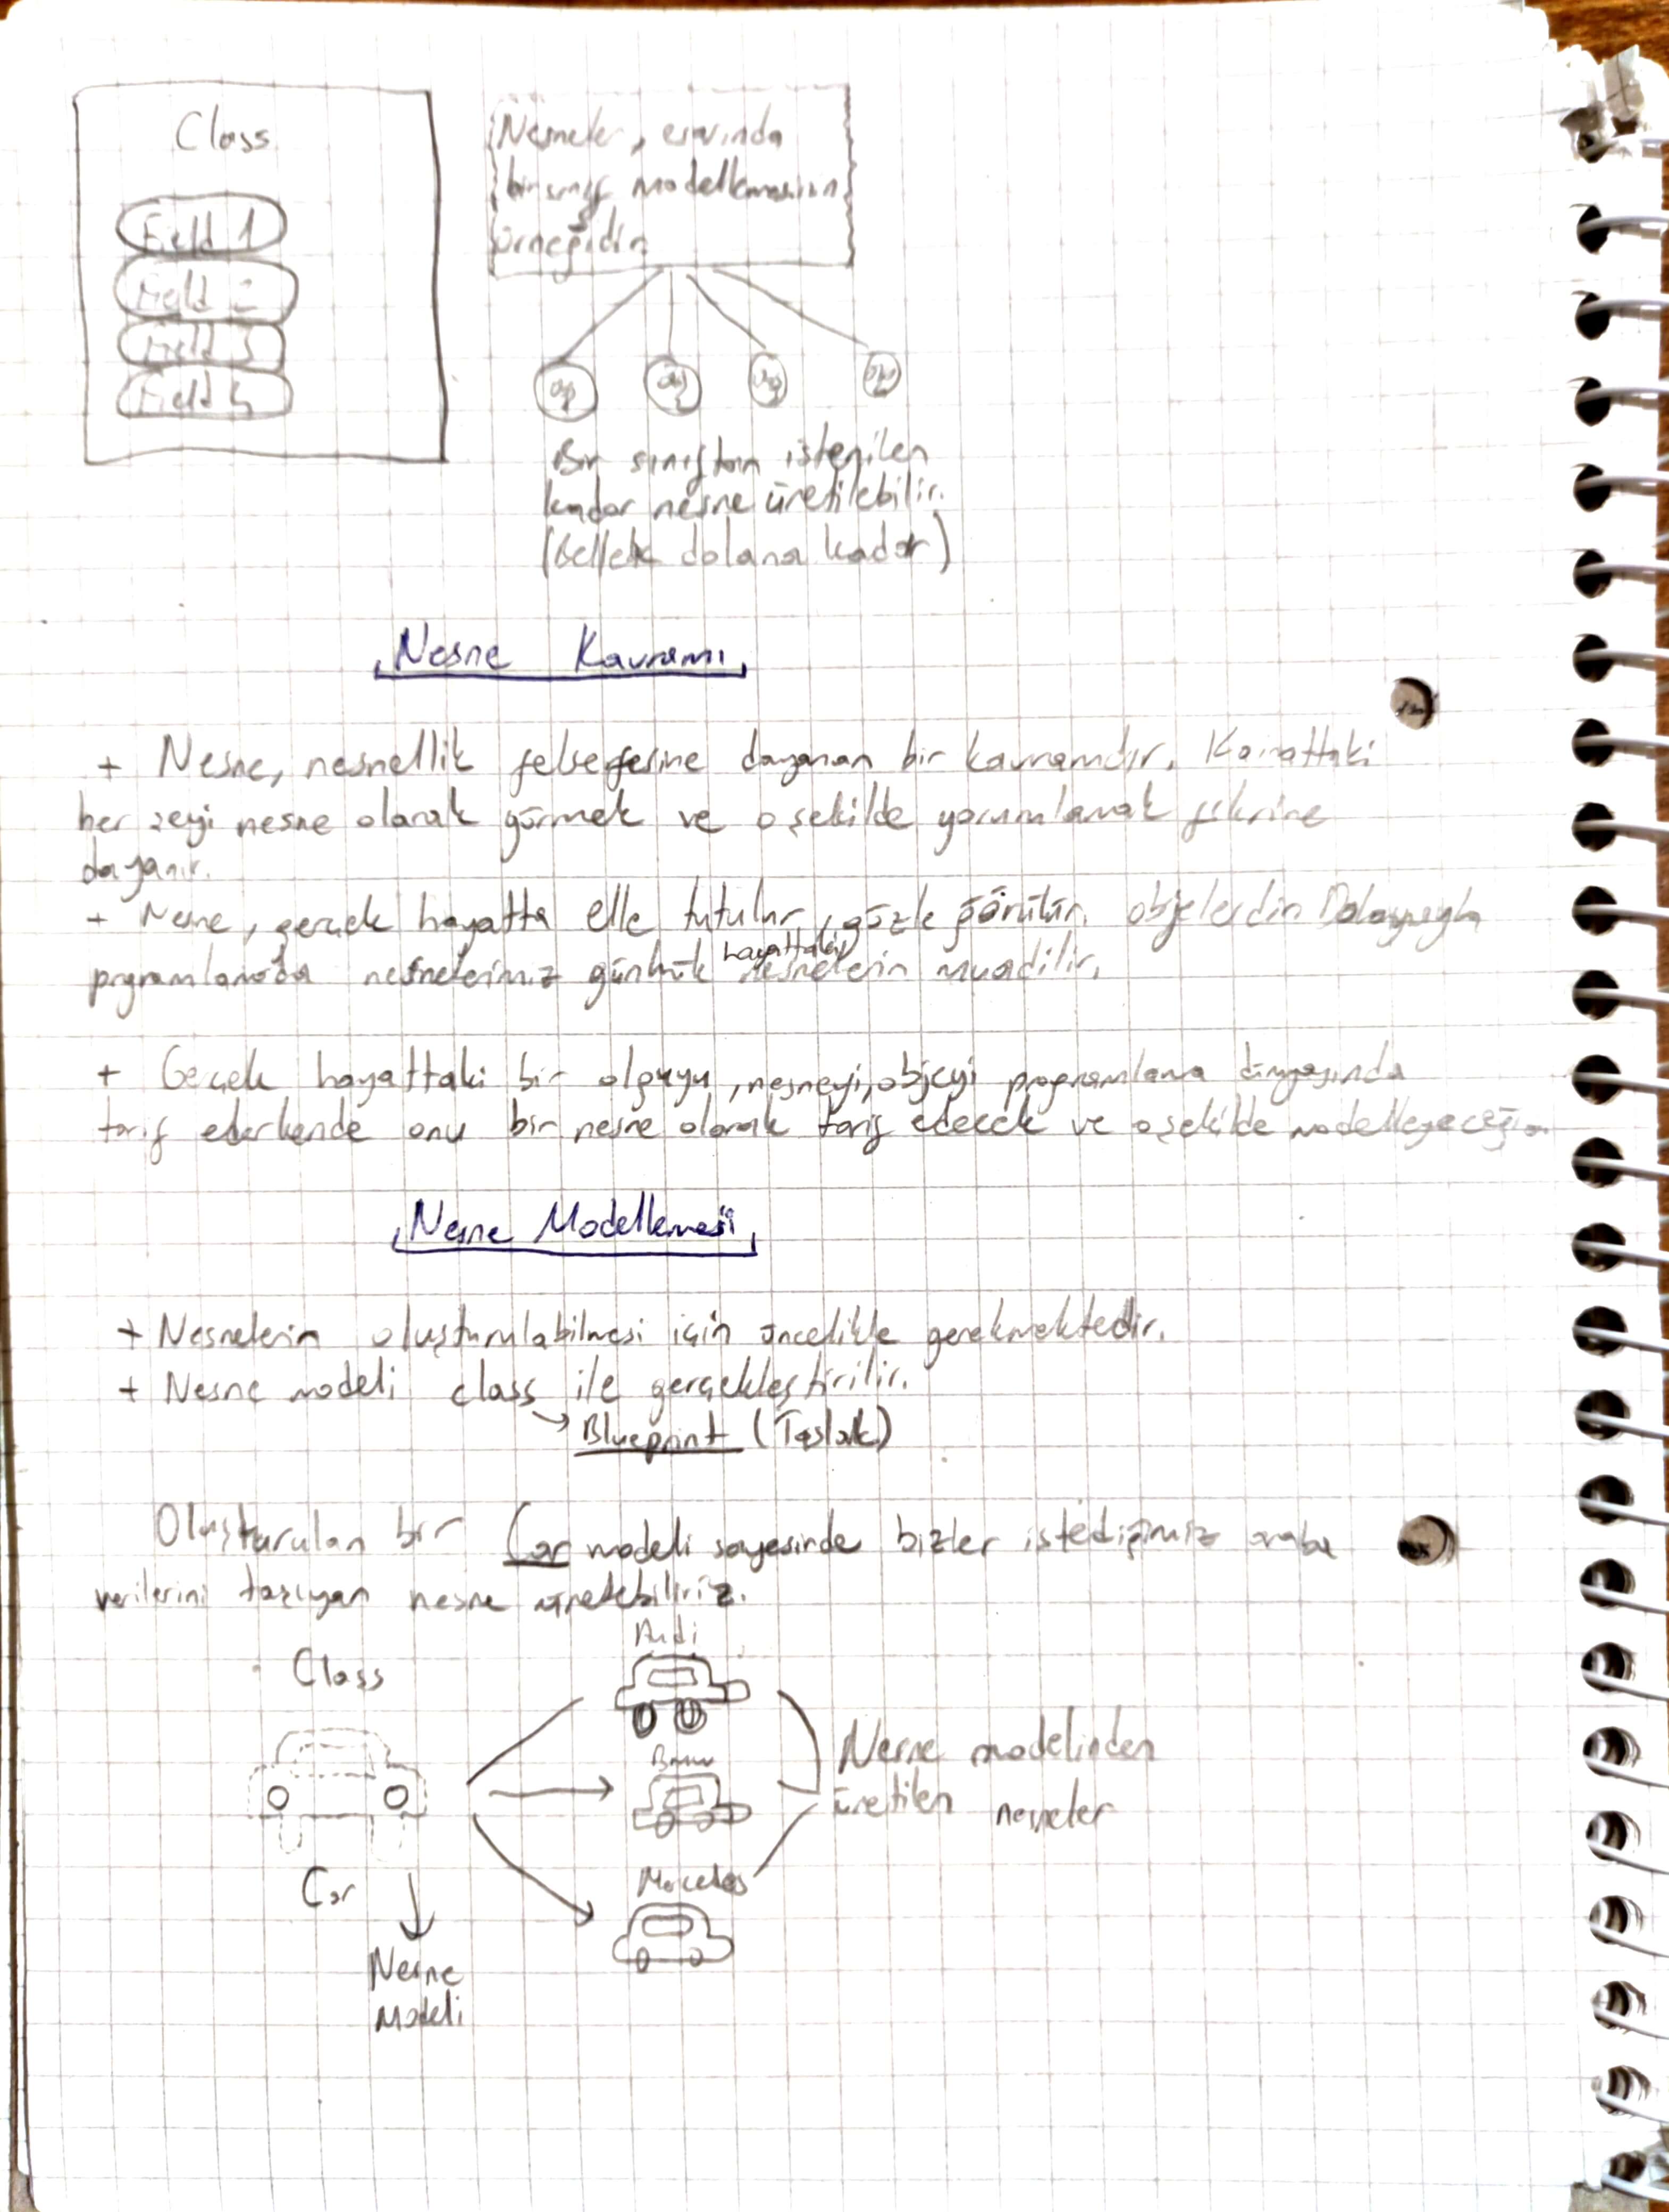 Class
Field 1
Field 2
Field 3
Field 4
Nesneler, esasında
bir sınıf modellemesinin
örneğidir.
obj
obj
obj
Bir sınıftan istenilen
kadar nesne üretilebilir.
(Bellek dolana kadar)
Nesne Kavramı
+ Nesne, nesnellik felsefesine dayanan bir kavramdır. Kainattaki
her şeyi nesne olarak görmek ve o şekilde yorumlamak fikrine
dayanır.
+ Nesne, gerçek hayatta elle tutulur, gözle görülür objelerdir. Dolayısıyla
hayattaki
programlamada nesnelerimiz günlük nesnelerin muadilir.
+ Gerçek hayattaki bir olguyu, nesneyi, objeyi programlama dünyasında
tarif ederkende onu bir nesne olarak tarif edecek ve o şekilde modelleyeceğiz
Nesne Modellemesi
+ Nesnelerin oluşturulabilmesi için öncelikle gerekmektedir.
+ Nesne modeli class ile gerçekleştirilir.
→ Blueprint (Taslak)
Oluşturulan bir Car modeli sayesinde bizler istediğimiz araba
verilerini taşıyan nesne üretebiliriz.
Class
Audi
Bmw
Nesne modelinden
üretilen nesneler
Car
Mercedes
Nesne
Modeli